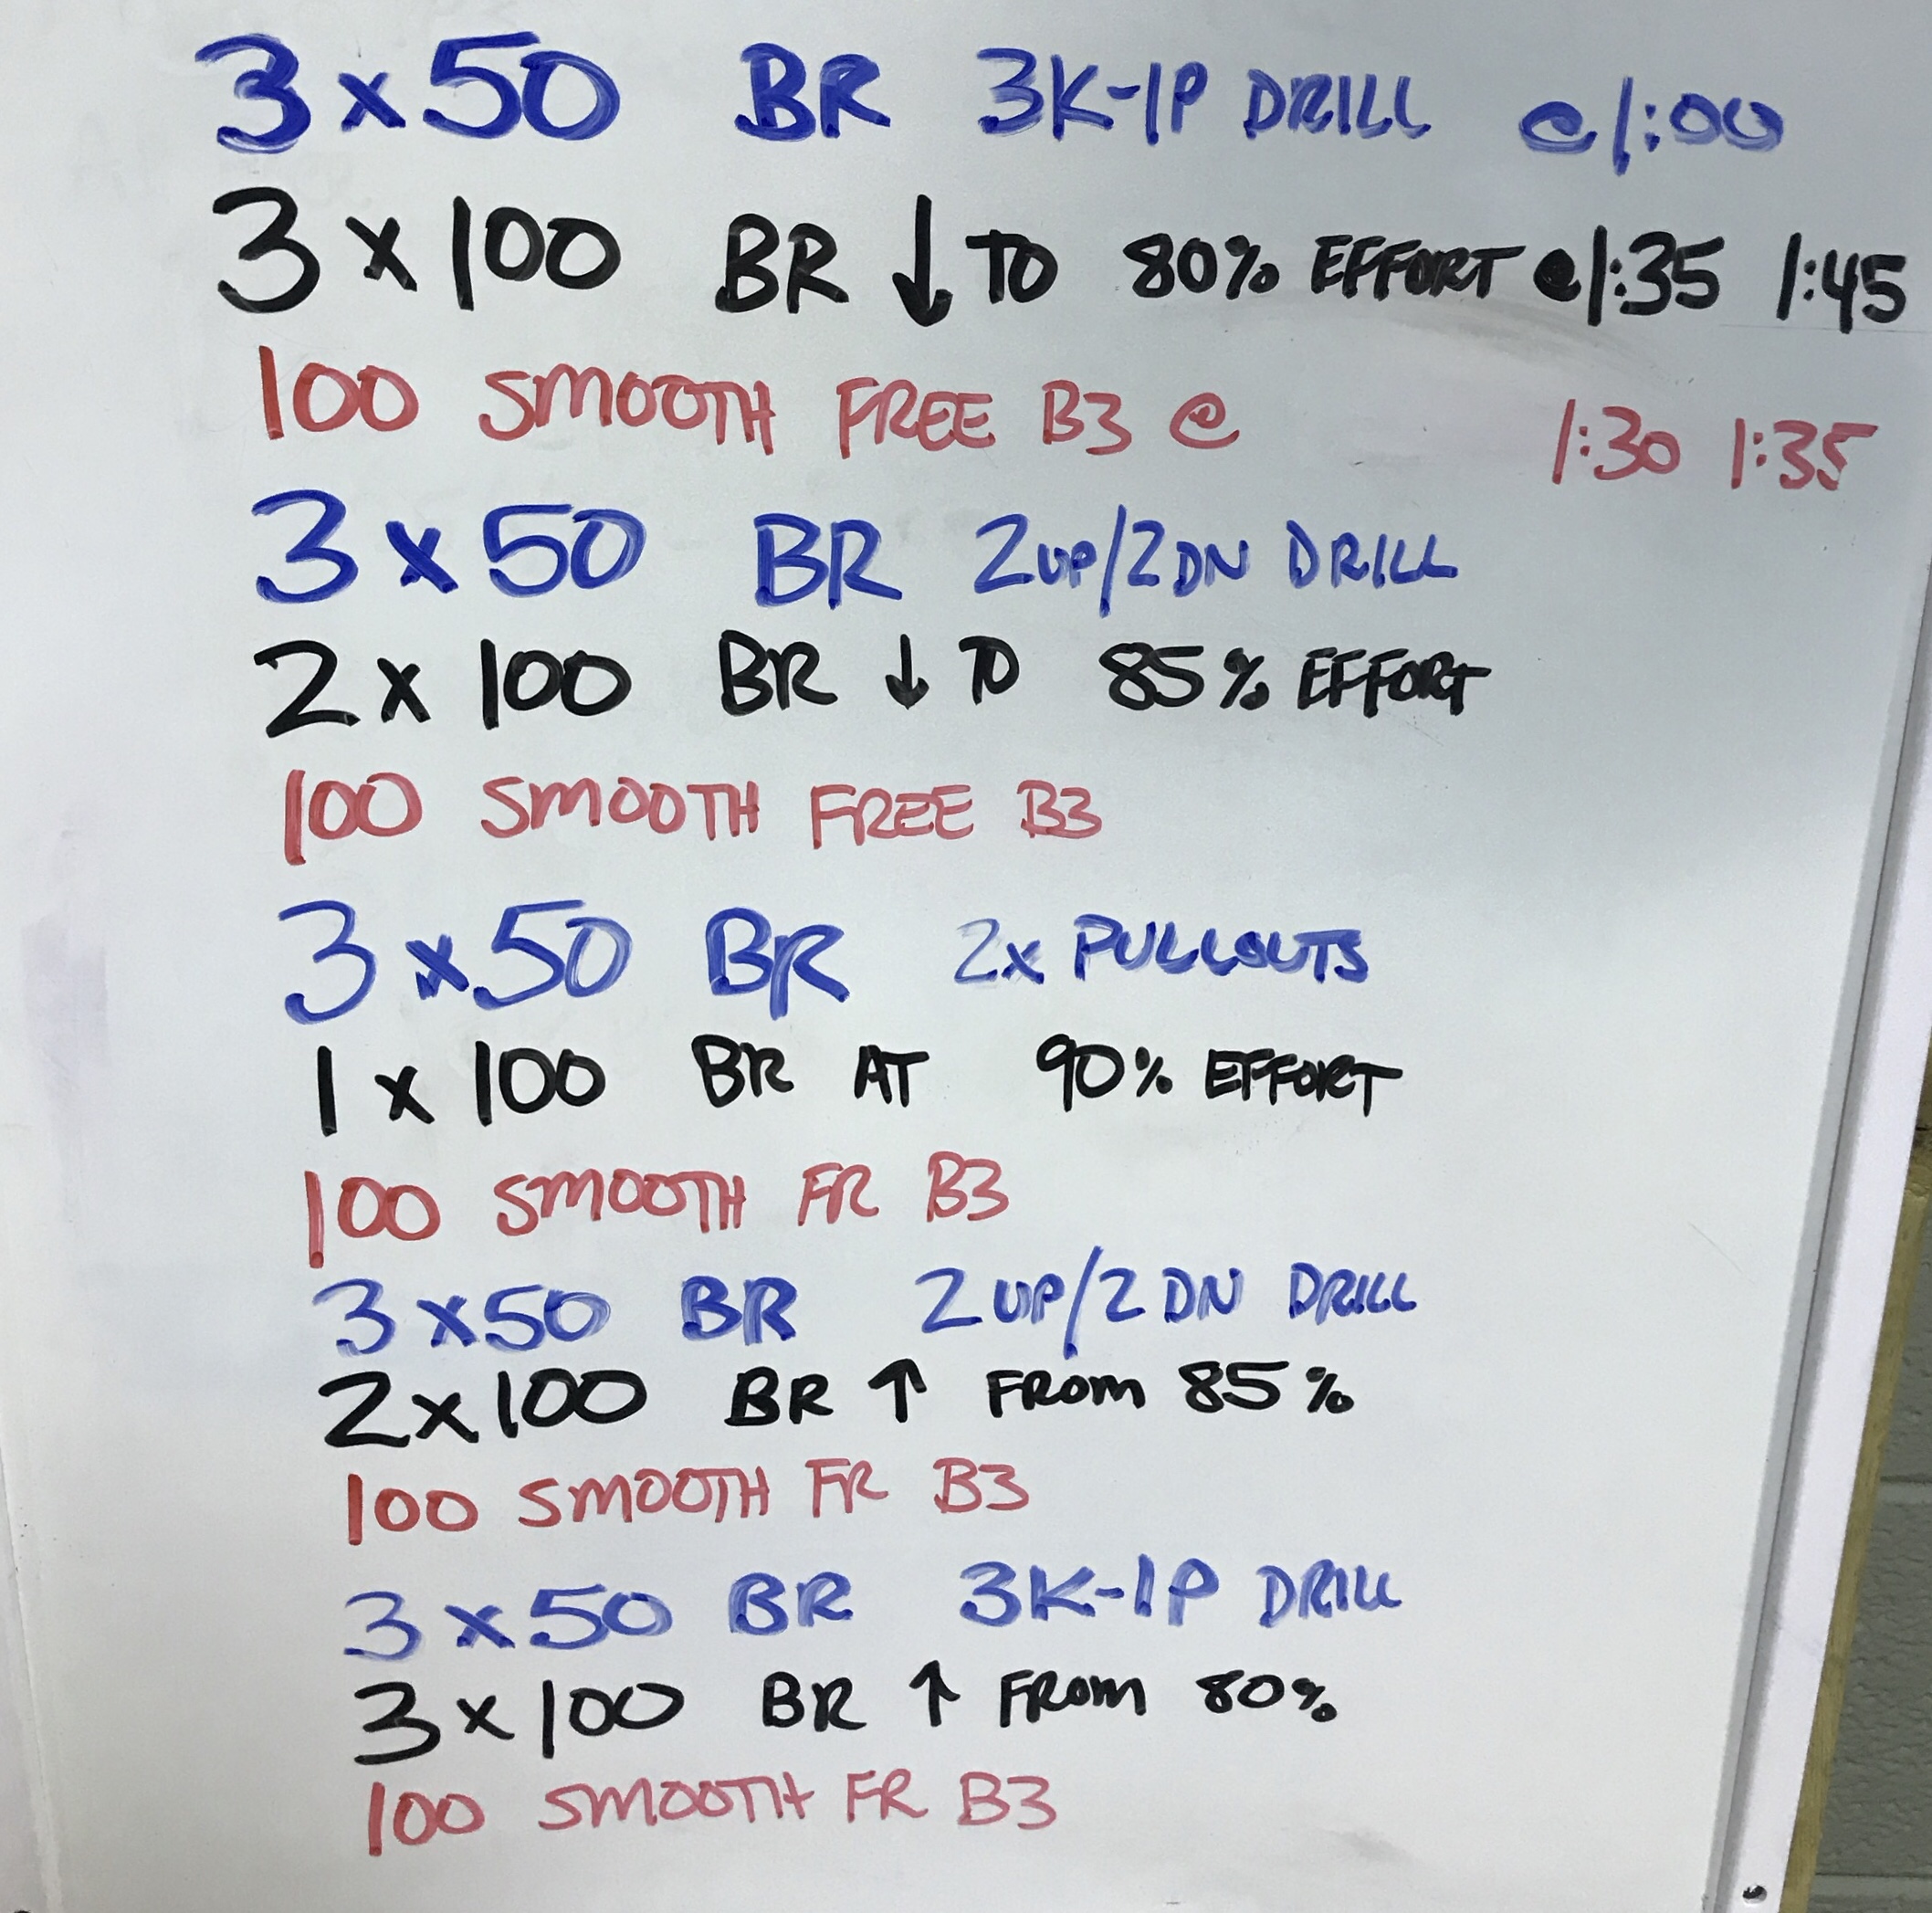 3 x 50 BR 3K-1P DRILL @1:00
3 x 100 BR ↓ TO 80% EFFORT @1:35 1:45
100 SMOOTH FREE B3 @ 1:30 1:35
3 x 50 BR 2UP/2DN DRILL
2 x 100 BR ↓ TO 85% EFFORT
100 SMOOTH FREE B3
3 x 50 BR 2x PULLOUTS
1 x 100 BR AT 90% EFFORT
100 SMOOTH FR B3
3 x 50 BR 2UP/2DN DRILL
2 x 100 BR ↑ FROM 85%
100 SMOOTH FR B3
3 x 50 BR 3K-1P DRILL
3 x 100 BR ↑ FROM 80%
100 SMOOTH FR B3